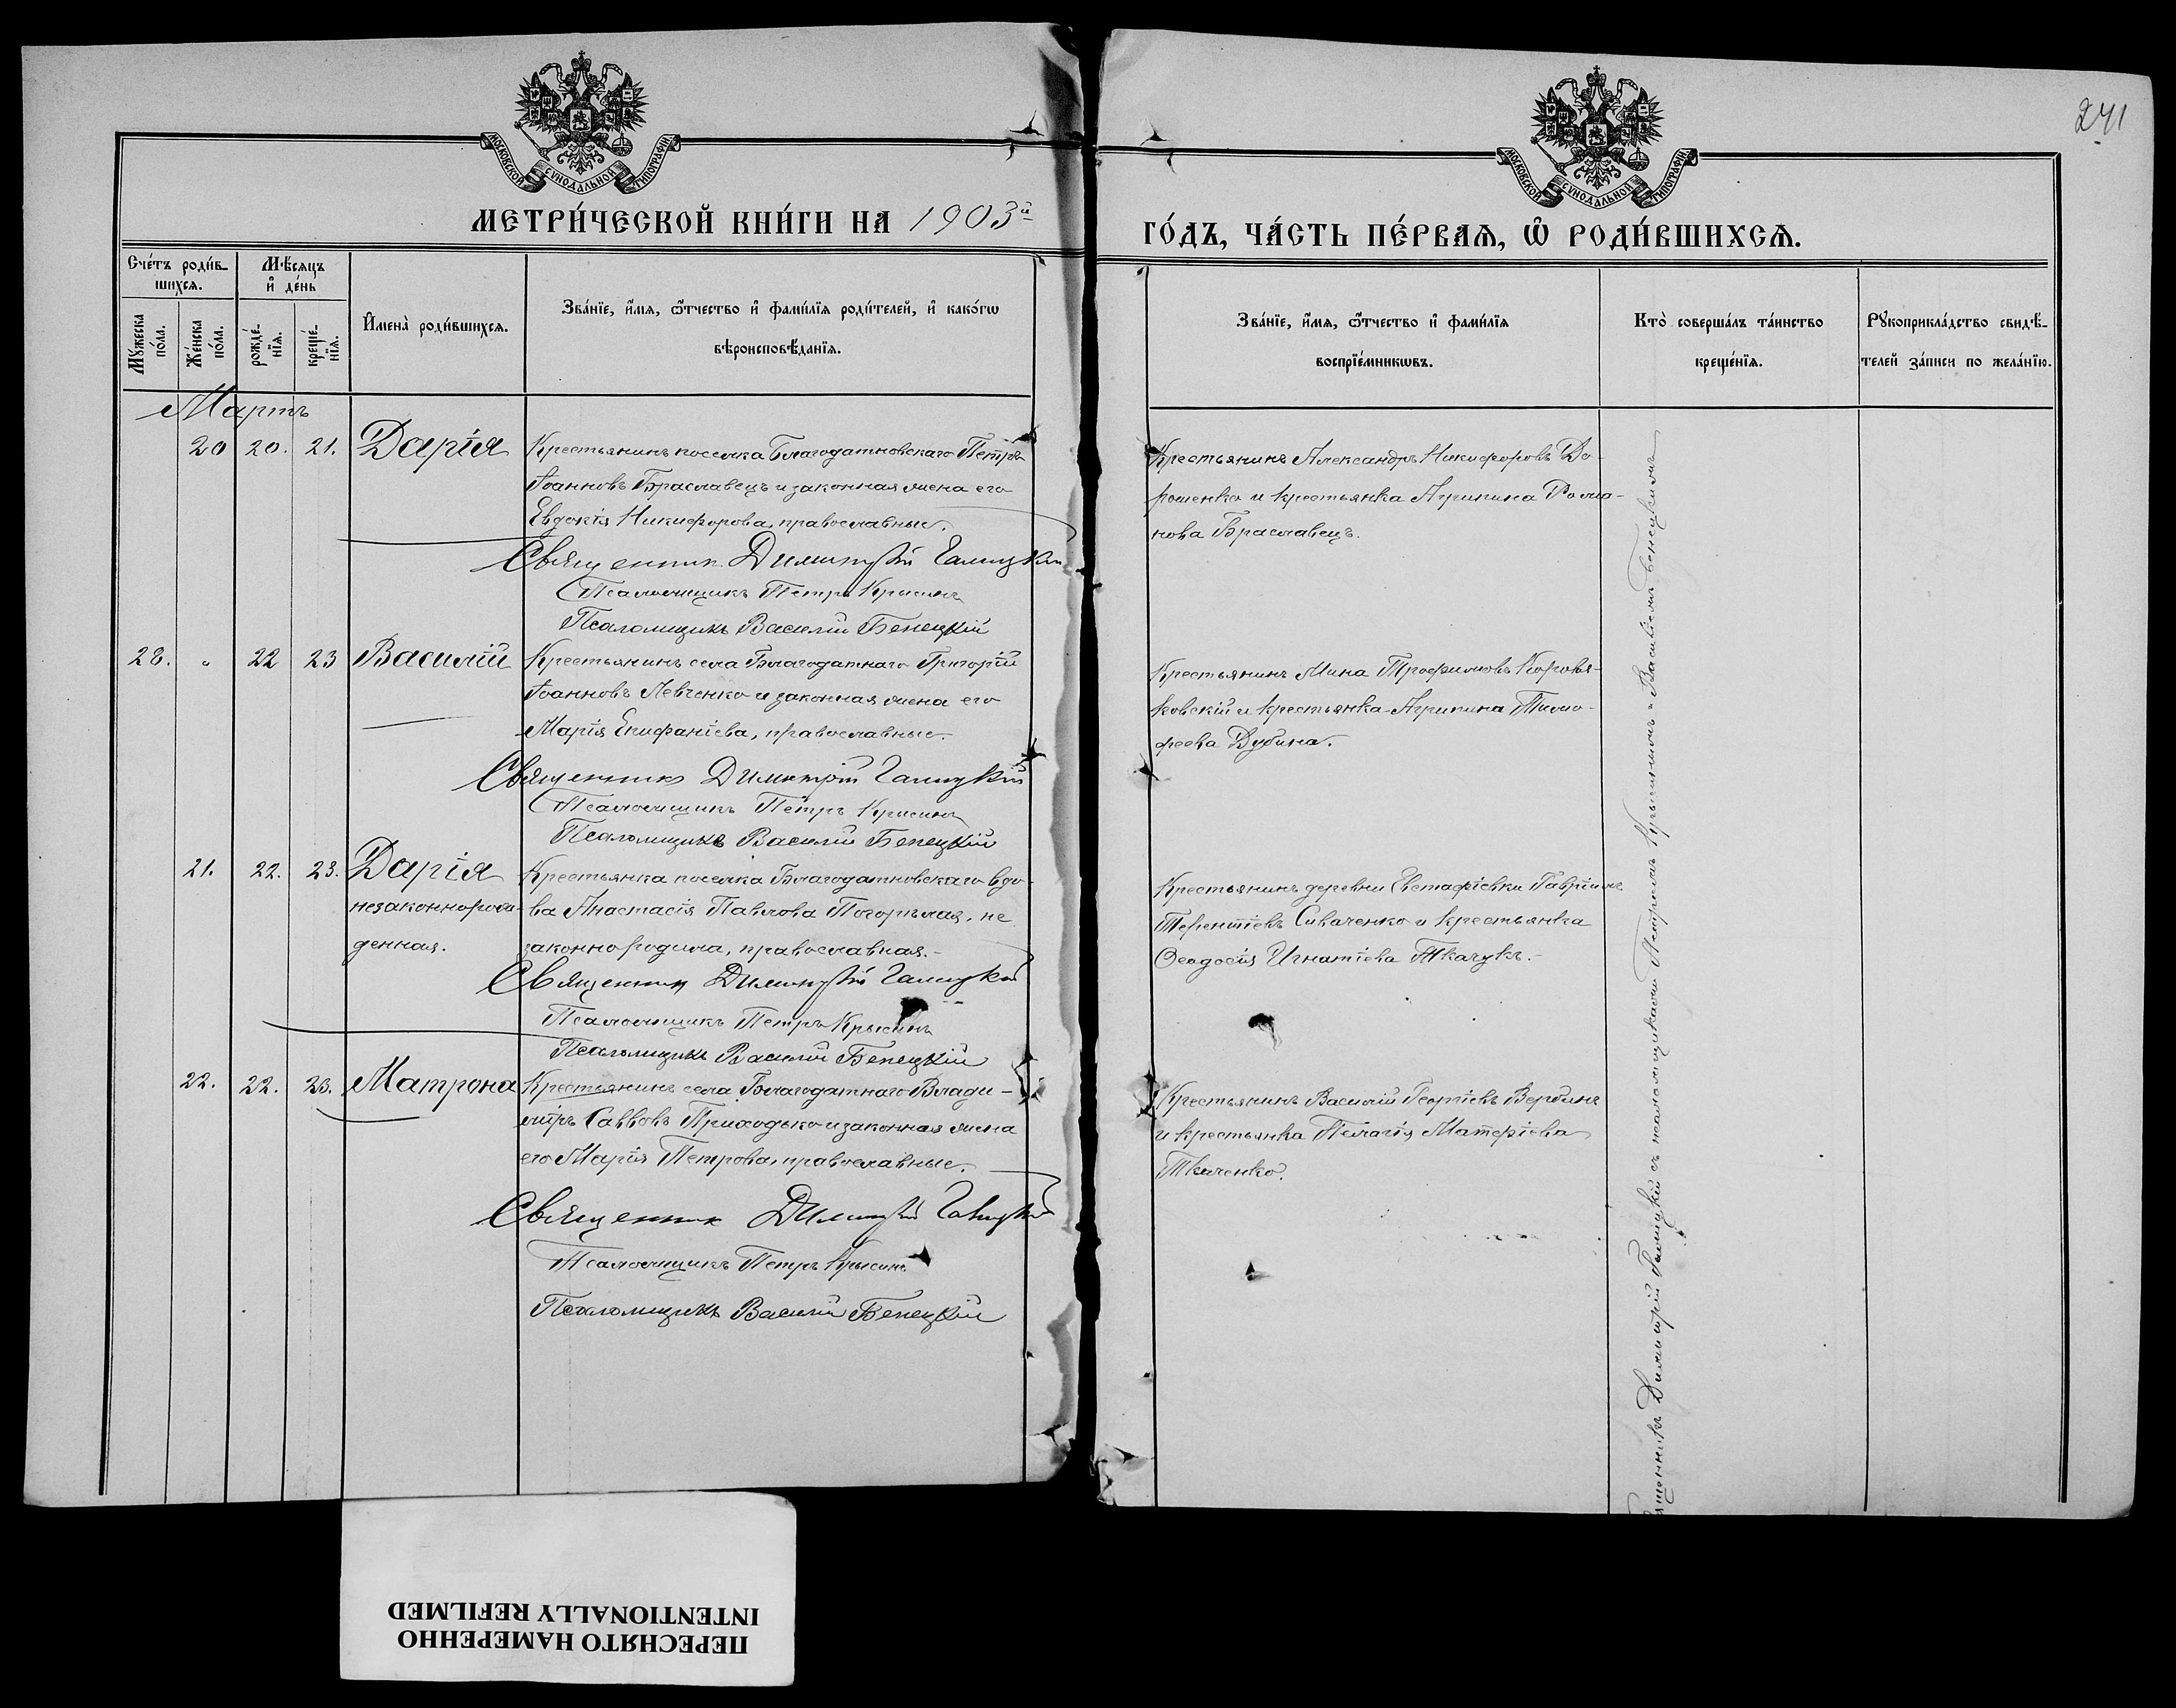 241
МОСКОВСКОЙ СУНОДАЛЬНОЙ ТИПОГРАФІИ
МОСКОВСКОЙ СУНОДАЛЬНОЙ ТИПОГРАФІИ
МЕТРИ́ЧЕСКОЙ КНИ́ГИ НА 1903й
ГО́ДЪ, ЧА́СТЬ ПЕ́РВАѦ, Ѡ҆ РОДИ́ВШИХСѦ.
Сче́тъ роди́в-
шихсѧ.
Мꙋ́жеска по́ла.
Же́нска по́ла.
Мѣ́сѧцъ
и҆ де́нь
рожде́-
нїѧ.
креще́-
нїѧ.
И҆мена̀ роди́вшихсѧ.
Зва́нїе, и҆́мѧ, ѻ҆́тчество и҆ фами́лїѧ роди́телей, и҆ како́гѡ
вѣроисповѣ́данїѧ.
Зва́нїе, и҆́мѧ, ѻ҆́тчество и҆ фами́лїѧ
воспрїе́мникѡвъ.
Кто̀ соверша́лъ та́инство
креще́нїѧ.
Рꙋкоприкла́дство свидѣ́-
телей за́писи по жела́нїю.
Мартъ
20 20. 21. Дарія
Крестьянинъ поселка Благодатновскаго Петръ
Іоанновъ Браславецъ и законная жена его
Евдокія Никифорова, православные.
Священник Димитрій Галицкій
Псаломщикъ Петръ Крысинъ
Псаломщикъ Василій Бенецкій
Крестьянинъ Александръ Никифоровъ До-
рошенко и крестьянка Агрипина Рома-
нова Браславецъ.
28. „ 22 23 Василій
Крестьянинъ села Благодатнаго Григорій
Іоанновъ Левченко и законная жена его
Марія Епифаніева, православные.
Священникъ Димитрій Галицкій
Псаломщикъ Петръ Крысинъ
Псаломщикъ Василій Бенецкій
Крестьянинъ Мина Трофимовъ Коровя-
ковскій и крестьянка Агрипина Тимо-
феева Дубина.
21. 22. 23. Дарія
незаконнорож-
денная.
Крестьянка поселка Благодатновскаго вдо-
ва Анастасія Павлова Погорѣлая, не
законно родила, православная.-
Священник Димитрій Галицкій
Псаломщикъ Петръ Крысинъ
Псаломщикъ Василій Бенецкій
Крестьянинъ деревни Евстафіевки Гавріилъ
Терентіевъ Сиваченко и крестьянка
Феодосія Игнатіева Ткачукъ.-
22. 22. 23. Матрона
Крестьянинъ села Благодатнаго Влади-
міръ Саввовъ Приходько и законная жена
его Марія Петрова, православные.
Священник Димитрій Галицкій
Псаломщикъ Петръ Крысинъ
Псаломщикъ Василій Бенецкій
Крестьянинъ Василій Георгіевъ Вербинъ
и крестьянка Пелагія Матфіева
Ткаченко.
Димитрій Галицкій съ псаломщиками Петромъ Крысинымъ и Василіемъ Бенецкимъ
ПЕРЕСНЯТО НАМЕРЕННО
INTENTIONALLY REFILMED